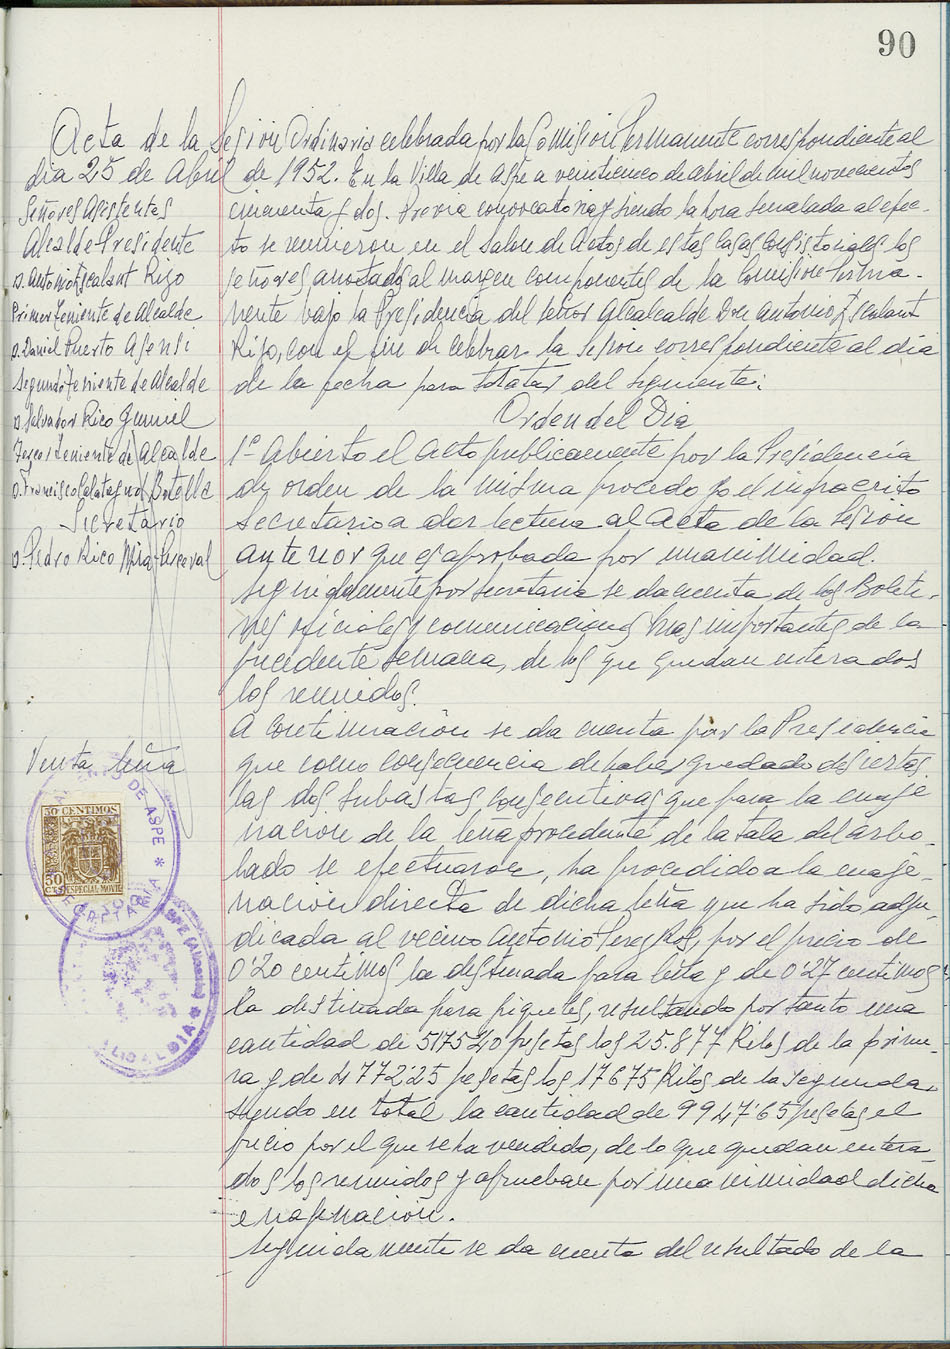 90
Acta de la Sesión Ordinaria celebrada por la Comisión Permanente correspondiente al
dia 25 de Abril de 1952. En la Villa de Aspe a veinticinco de abril de mil novecientos
cincuenta y dos. Previa convocatoria y siendo la hora señalada al efec-
to se reunieron en el Salon de Actos de estas Casas Consistoriales los
señores anotados al margen componentes de la Comision Perma-
nente bajo la Presidencia del señor Alcalcalde Don Antonio Escalant
Rizo, con el fin de celebrar la sesion correspondiente al dia
de la fecha para tratar del siguiente:
Orden del Dia
1º Abierto el Acto publicamente por la Presidencia
de orden de la misma procedo yo el infracrito
Secretario a dar lectura al Acta de la Sesion
anterior que es aprobada por unanimidad.
Seguidamente por Secretaria se da cuenta de los Boleti-
nes oficiales y comunicaciones mas importantes de la
precedente semana, de los que quedan enterados
los reunidos.
A continuación se da cuenta por la Presidencia
que como consecuencia de haber quedado desiertas
las dos subastas consecutivas que para la enaje
nacion de la leña procedente de la tala del arbo-
lado se efectuaron, ha procedido a la enaje-
nacion directa de dicha leña que ha sido adju-
dicada al vecino Antonio Perez Ros, por el precio de
0'20 centimos la destinada para leña y de 0'27 centimos
la destinada para piquetes, resultando por tanto una
cantidad de 5175'40 pesetas los 25.877 Kilos de la prime-
ra y de 4772'25 pesetas los 17675 Kilos de la segunda,
siendo en total la cantidad de 9947'65 pesetas el
precio por el que se ha vendido, de lo que quedan entera-
dos los reunidos y aprueban por unanimidad dicha
enajenacion.
Seguidamente se da cuenta del resultado de la
Señores Asistentes
Alcalde Presidente
D. Antonio Escalant Rizo
Primer Teniente de Alcalde
D. Daniel Puerto Asensi
Segundo Teniente de Alcalde
D. Salvador Rico Gumiel
Tercer Teniente de Alcalde
D. Francisco Calatayud Botella
Secretario
D. Pedro Rico Mira-Perceval
Venta leña
DE ASPE *
SECRETARIA *
50 CENTIMOS
50
CTS ESPECIAL MOVIL
ASPE (Alicante) *
ALCALDIA